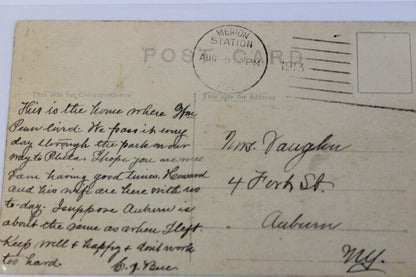 MERION
STATION
AUG 5 PM
1913
POST CARD
This side for Correspondence
This side for Address
This is the home where Wm.
Penn lived. We pass it every
day through the park on our
way to Phila. I hope you are well
I am having good times. Howard
and his wife are here with us
to-day. I suppose Auburn is
about the same as when I left.
Keep well & happy & don't work
too hard.
Mrs. Vaughn
4 Fort St.
Auburn
N.Y.